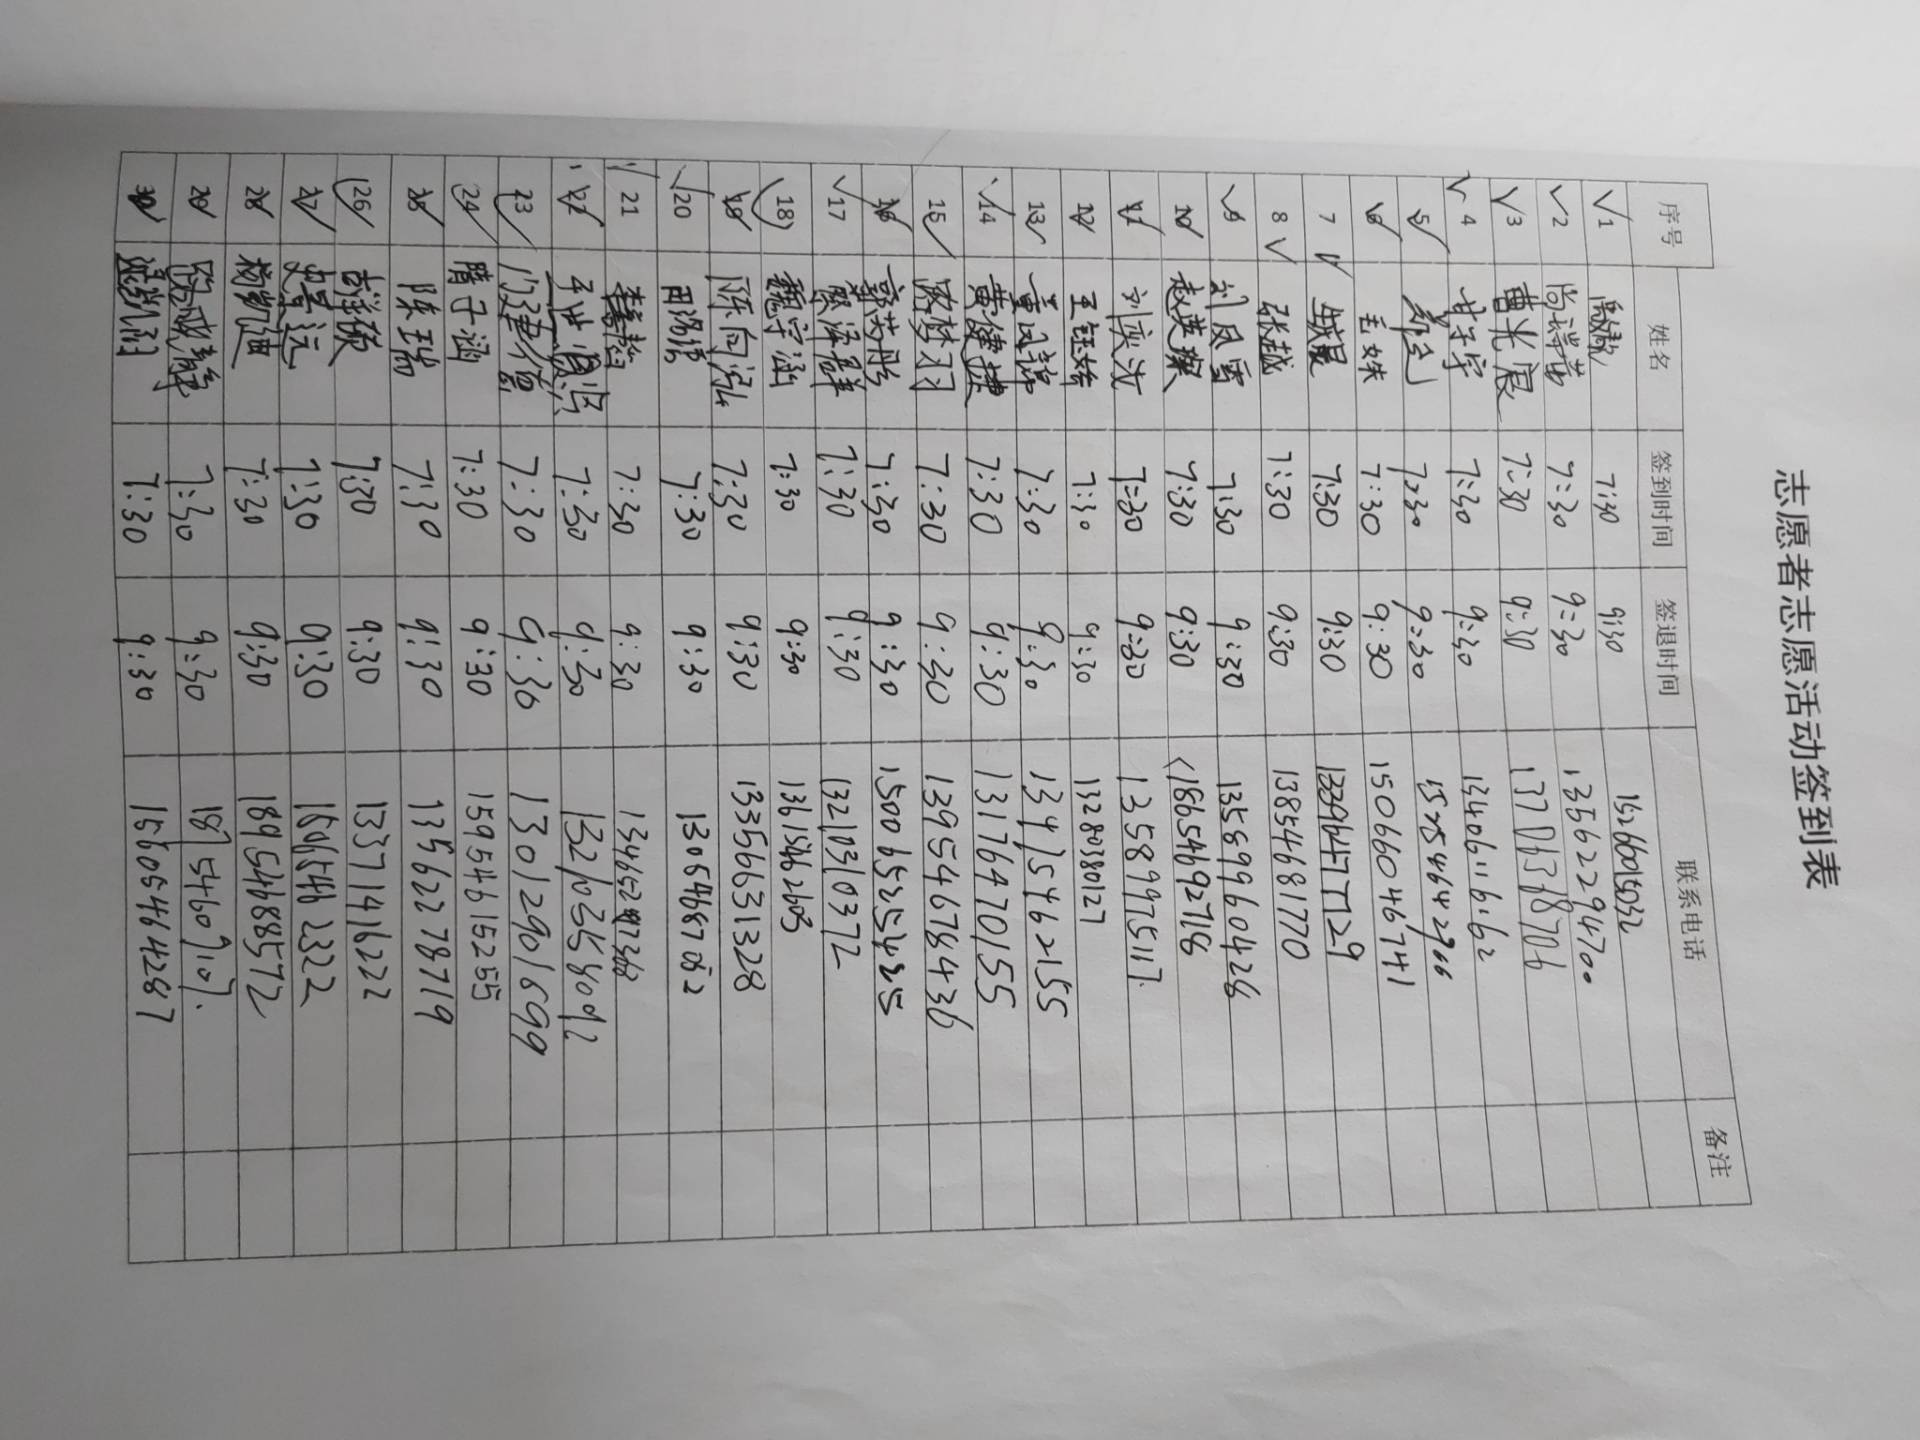 志愿者志愿活动签到表
序号 姓名 签到时间 签退时间 联系电话 备注
1 7:30 9:30 15266015032
2 尚端苗 7:30 9:30 13562294700
3 曹光宸 7:30 9:30 13706368706
4 7:30 9:30 13406116162
5 7:30 9:30 15254642966
6 毛姝 7:30 9:30 15066046741
7 7:30 9:30 13396477729
8 张越 7:30 9:30 13854681770
9 刘凤雪 7:30 9:30 13589960428
10 赵英聚 7:30 9:30 186654692718
11 刘奕汝 7:30 9:30 13589975117
12 王钰婷 7:30 9:30 13280380127
13 董凤谅 7:30 9:30 13415462155
14 黄健捷 7:30 9:30 13176470155
15 路梦习 7:30 9:30 13954678436
16 郭芳彤 7:30 9:30
17 7:30 9:30 13210310372
18 魏宇涵 7:30 9:30 13615462603
19 陈向泓 7:30 9:30 13356631328
20 田洛锦 7:30 9:30 13054687052
21 7:30 9:30
22 7:30 9:30 13210358092
23 7:30 9:30 13012901699
24 腾子涵 7:30 9:30 15954615255
25 陈瑞 7:30 9:30 13562278719
26 7:30 9:30 13371416222
27 7:30 9:30
28 7:30 9:30 18954688572
29 7:30 9:30 18754609107
30 7:30 9:30 15605464287